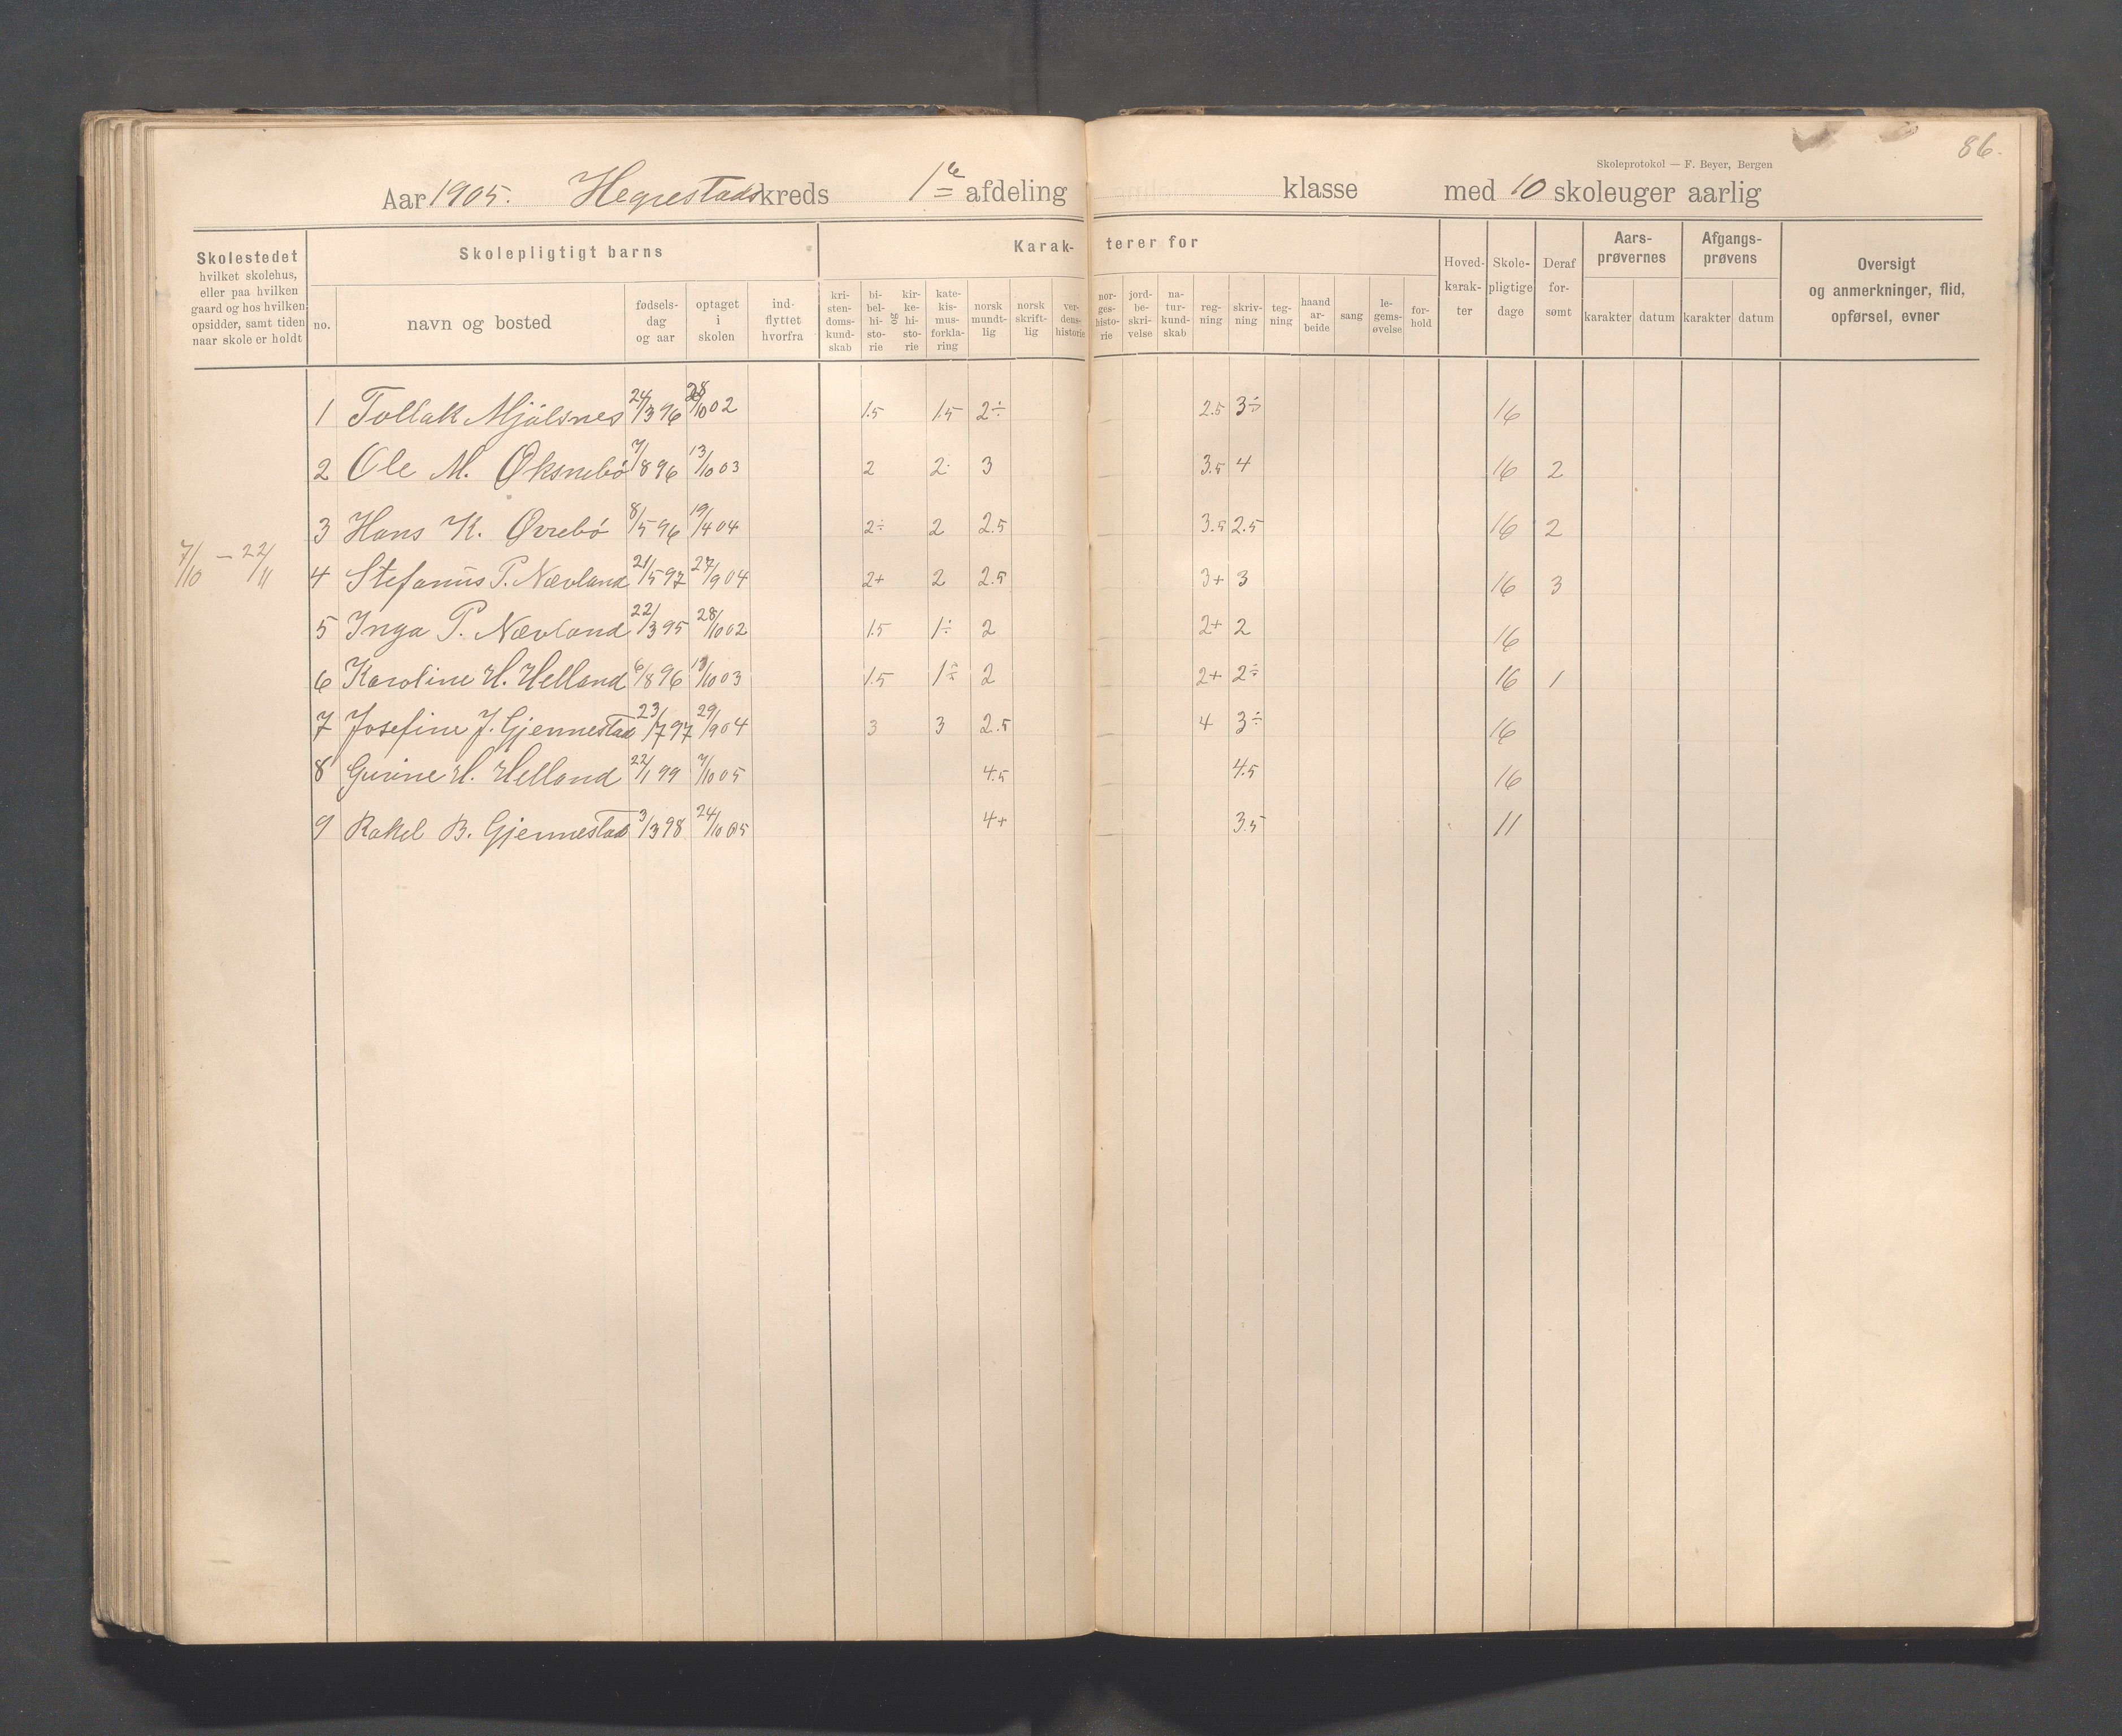 86.
Skoleprotokol — F. Beyer, Bergen
Aar 1905. Hegrestads kreds 1ste afdeling klasse med 10 skoleuger aarlig
Skolestedet hvilket skolehus, eller paa hvilken gaard og hos hvilken opsidder, samt tiden naar skole er holdt
Skolepligtigt barns
no. navn og bosted fødsels-dag og aar optaget i skolen ind-flyttet hvorfra
Karak- terer for
kri-sten-doms-kund-skab bi-bel-hi-sto-rie og kir-ke-hi-sto-rie kate-kis-mus-forkla-ring norsk mundt-lig norsk skrift-lig ver-dens-historie nor-ges-histo-rie jord-be-skri-velse na-tur-kund-skab reg-ning skriv-ning teg-ning haand ar-beide sang le-gems-øvelse for-hold
Hoved-karak-ter Skole-pligtige dage Deraf for-sømt
Aars-prøvernes karakter datum
Afgangs-prøvens karakter datum
Oversigt og anmerkninger, flid, opførsel, evner
1 Tollak Mjølsnes 24/3 96 28/10 02 1.5 1.5 2÷ 2.5 3÷ 16
2 Ole M. Øksnebø 7/8 96 13/10 03 2 2 3 3.5 4 16 2
3 Hans K. Øvrebø 8/5 96 19/4 04 2÷ 2 2.5 3.5 2.5 16 2
7/10 — 22/11
4 Stefanus P. Nævland 21/5 97 27/9 04 2+ 2 2.5 3+ 3 16 3
5 Inga P. Nævland 22/3 95 28/10 02 1.5 1÷ 2 2+ 2 16
6 Karoline H. Helland 6/8 96 13/10 03 1.5 1÷ 2 2+ 2÷ 16 1
7 Josefine J. Gjennestad 23/7 97 29/9 04 3 3 2.5 4 3÷ 16
8 Gurine H. Helland 22/1 99 7/10 05 4.5 4.5 16
9 Rakel B. Gjennestad 3/3 98 24/10 05 4+ 3.5 11